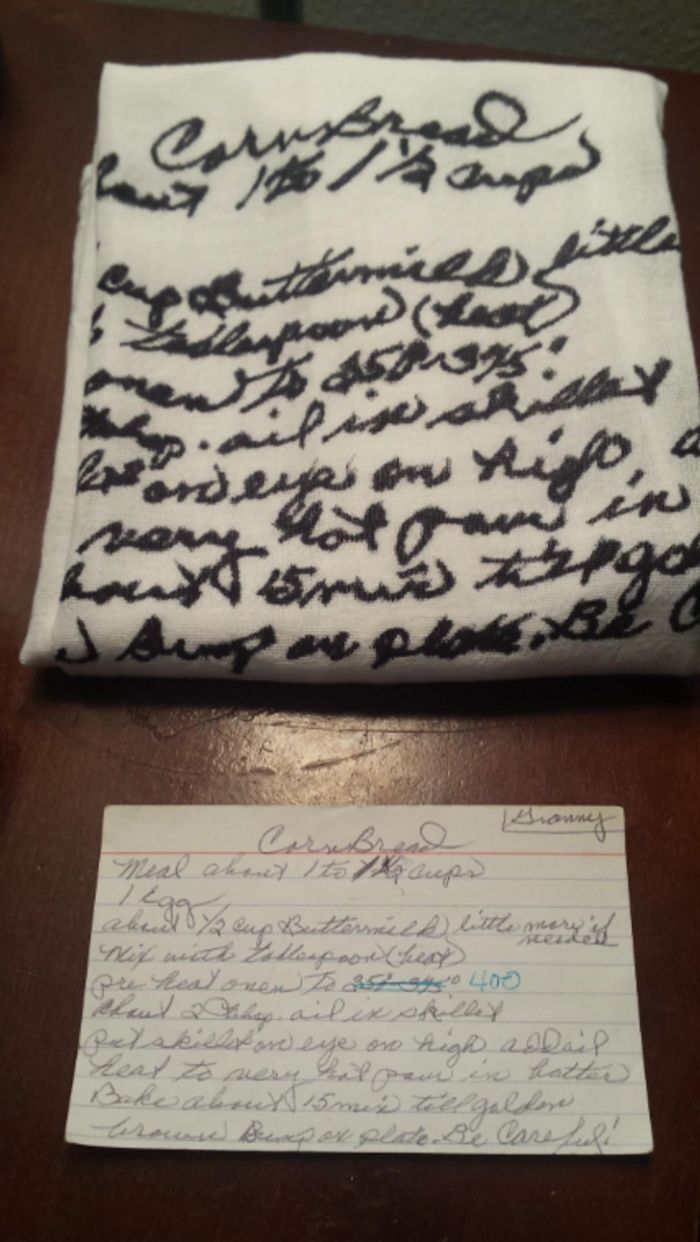 CornBread
out 1 to 1 1/2 cups
cup Buttermilk, little
tablespoon (heat)
onen to 350-375°
tbsp. oil in skillet
on eye on high, a
very hot pour in
bout 15 min till gol
Bump on plate. Be C
Granny
CornBread
Meal about 1 to 1 1/2 cups
1 Egg
about 1/2 cup Buttermilk, little more if
needed
Mix with tablespoon (heat)
pre heat onen to 350-375° 400
About 2 tbsp. oil in skillet
put skillet on eye on high add oil
heat to very hot pour in batter
Bake about 15 min till golden
brown Bump on plate. Be Careful!